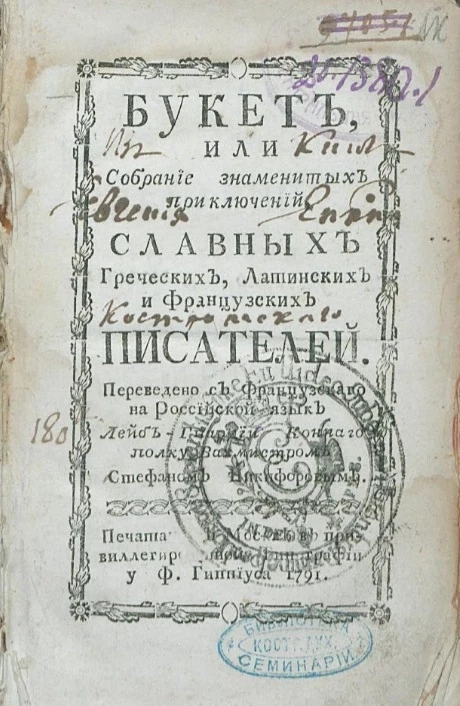 БУКЕТЪ,
ИЛИ
Собранїе знаменитыхъ
приключенїй
СЛАВНЫХЪ
Греческихъ, Латинскихъ
и Французскихъ
ПИСАТЕЛЕЙ.
Переведено съ Французскаго
на Россїйской языкъ
Лейбъ-Гвардїи Коннаго
полку Вахмистромъ
Стефаномъ Никифоровымъ.
Печатано въ Москвѣ въ при-
виллегированной Типографїи
у Ф. Гиппїуса 1791.
Изъ Книг
Евгенія
Костромскаго
180
БИБЛІОТЕКА
КОСТР. ДУХ.
СЕМИНАРІИ